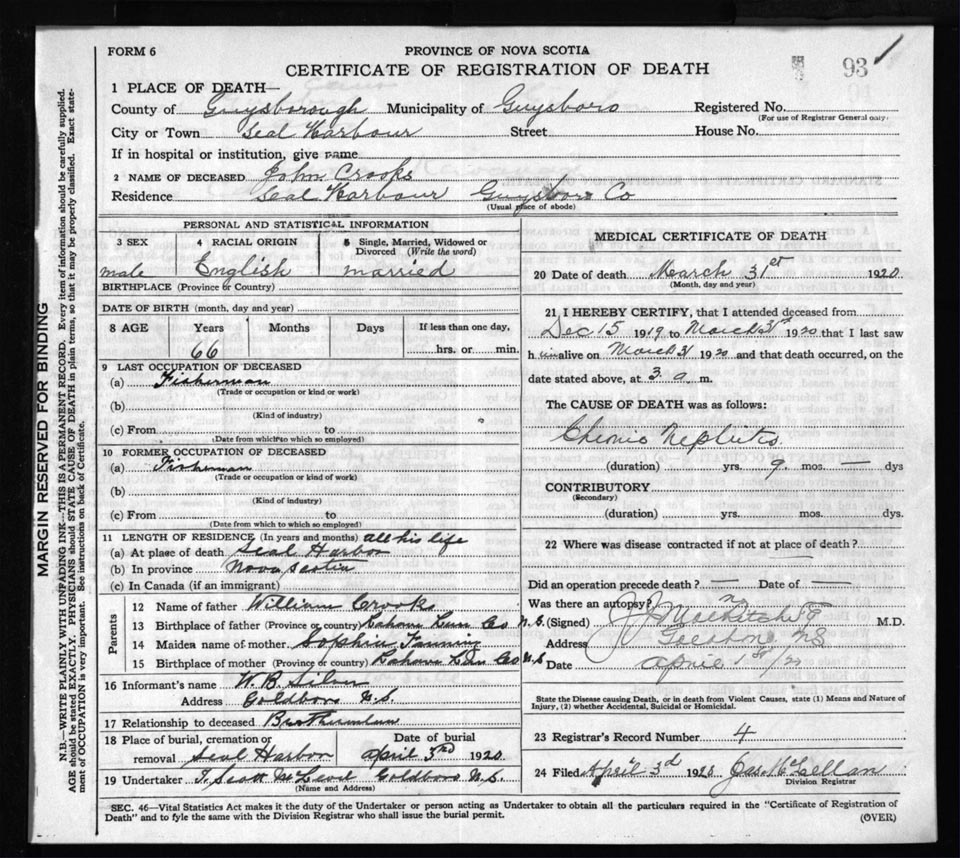 FORM 6
PROVINCE OF NOVA SCOTIA
93
CERTIFICATE OF REGISTRATION OF DEATH
1 PLACE OF DEATH—
County of Guysborough Municipality of Guysboro Registered No.
(For use of Registrar General only.)
City or Town Seal Harbour Street House No.
If in hospital or institution, give name
2 NAME OF DECEASED John Crooks
Residence Seal Harbour Guysboro Co
(Usual place of abode)
PERSONAL AND STATISTICAL INFORMATION
3 SEX 4 RACIAL ORIGIN 5 Single, Married, Widowed or Divorced (Write the word)
male English married
BIRTHPLACE (Province or Country)
DATE OF BIRTH (month, day and year)
8 AGE Years Months Days If less than one day,
66 hrs. or min.
9 LAST OCCUPATION OF DECEASED
(a) Fisherman
(Trade or occupation or kind or work)
(b)
(Kind of industry)
(c) From to
(Date from which to which so employed)
10 FORMER OCCUPATION OF DECEASED
(a) Fisherman
(Trade or occupation or kind of work)
(b)
(Kind of industry)
(c) From to
(Date from which to which so employed)
11 LENGTH OF RESIDENCE (In years and months) all his life
(a) At place of death Seal Harbor
(b) In province Nova Scotia
(c) In Canada (if an immigrant)
Parents
12 Name of father William Crooks
13 Birthplace of father (Province or country) Lahave Lun Co N.S.
14 Maiden name of mother Sophia Fanning
15 Birthplace of mother (Province or country) Lahave Lun Co N.S
16 Informant's name W. B. Silver
Address Goldboro N.S.
17 Relationship to deceased
18 Place of burial, cremation or removal Date of burial
Seal Harbor April 3rd 1920
19 Undertaker T. Scott McLeod Goldboro N.S.
(Name and Address)
MEDICAL CERTIFICATE OF DEATH
20 Date of death March 31st 1920
(Month, day and year)
21 I HEREBY CERTIFY, that I attended deceased from
Dec 15 1919 to March 31st 1920 that I last saw
him alive on March 31 1920 and that death occurred, on the
date stated above, at 3 a. m.
The CAUSE OF DEATH was as follows:
Chronic Nephritis
(duration) yrs. 9 mos. — dys
CONTRIBUTORY
(Secondary)
(duration) yrs. mos. dys.
22 Where was disease contracted if not at place of death?
Did an operation precede death? — Date of —
Was there an autopsy? no
(Signed) M.D.
Address N.S
Date April 1st/20
State the Disease causing Death, or in death from Violent Causes, state (1) Means and Nature of
Injury, (2) whether Accidental, Suicidal or Homicidal.
23 Registrar's Record Number 4
24 Filed April 3d 1920 Jas. McLellan
Division Registrar
SEC. 46—Vital Statistics Act makes it the duty of the Undertaker or person acting as Undertaker to obtain all the particulars required in the "Certificate of Registration of
Death" and to fyle the same with the Division Registrar who shall issue the burial permit.
(OVER)
MARGIN RESERVED FOR BINDING
N.B.—WRITE PLAINLY WITH UNFADING INK—THIS IS A PERMANENT RECORD. Every item of information should be carefully supplied.
AGE should be stated EXACTLY. PHYSICIANS should STATE CAUSE OF DEATH in plain terms, so that it may be properly classified. Exact state-
ment of OCCUPATION is very important. See instructions on back of Certificate.